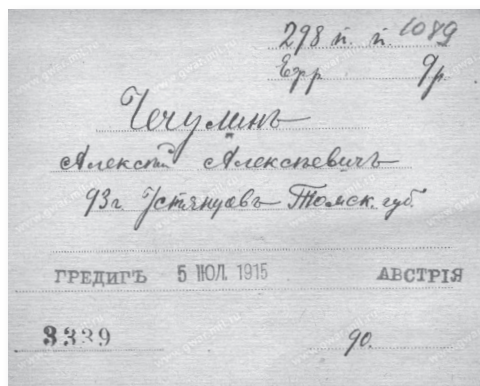 298 п. п. 1089
Ефр др.
Чечулинъ
Алексѣй Алексѣевичъ
93 г. Томск. губ.
ГРЕДИГЪ 5 ІЮЛ. 1915 АВСТРІЯ
3339 90.